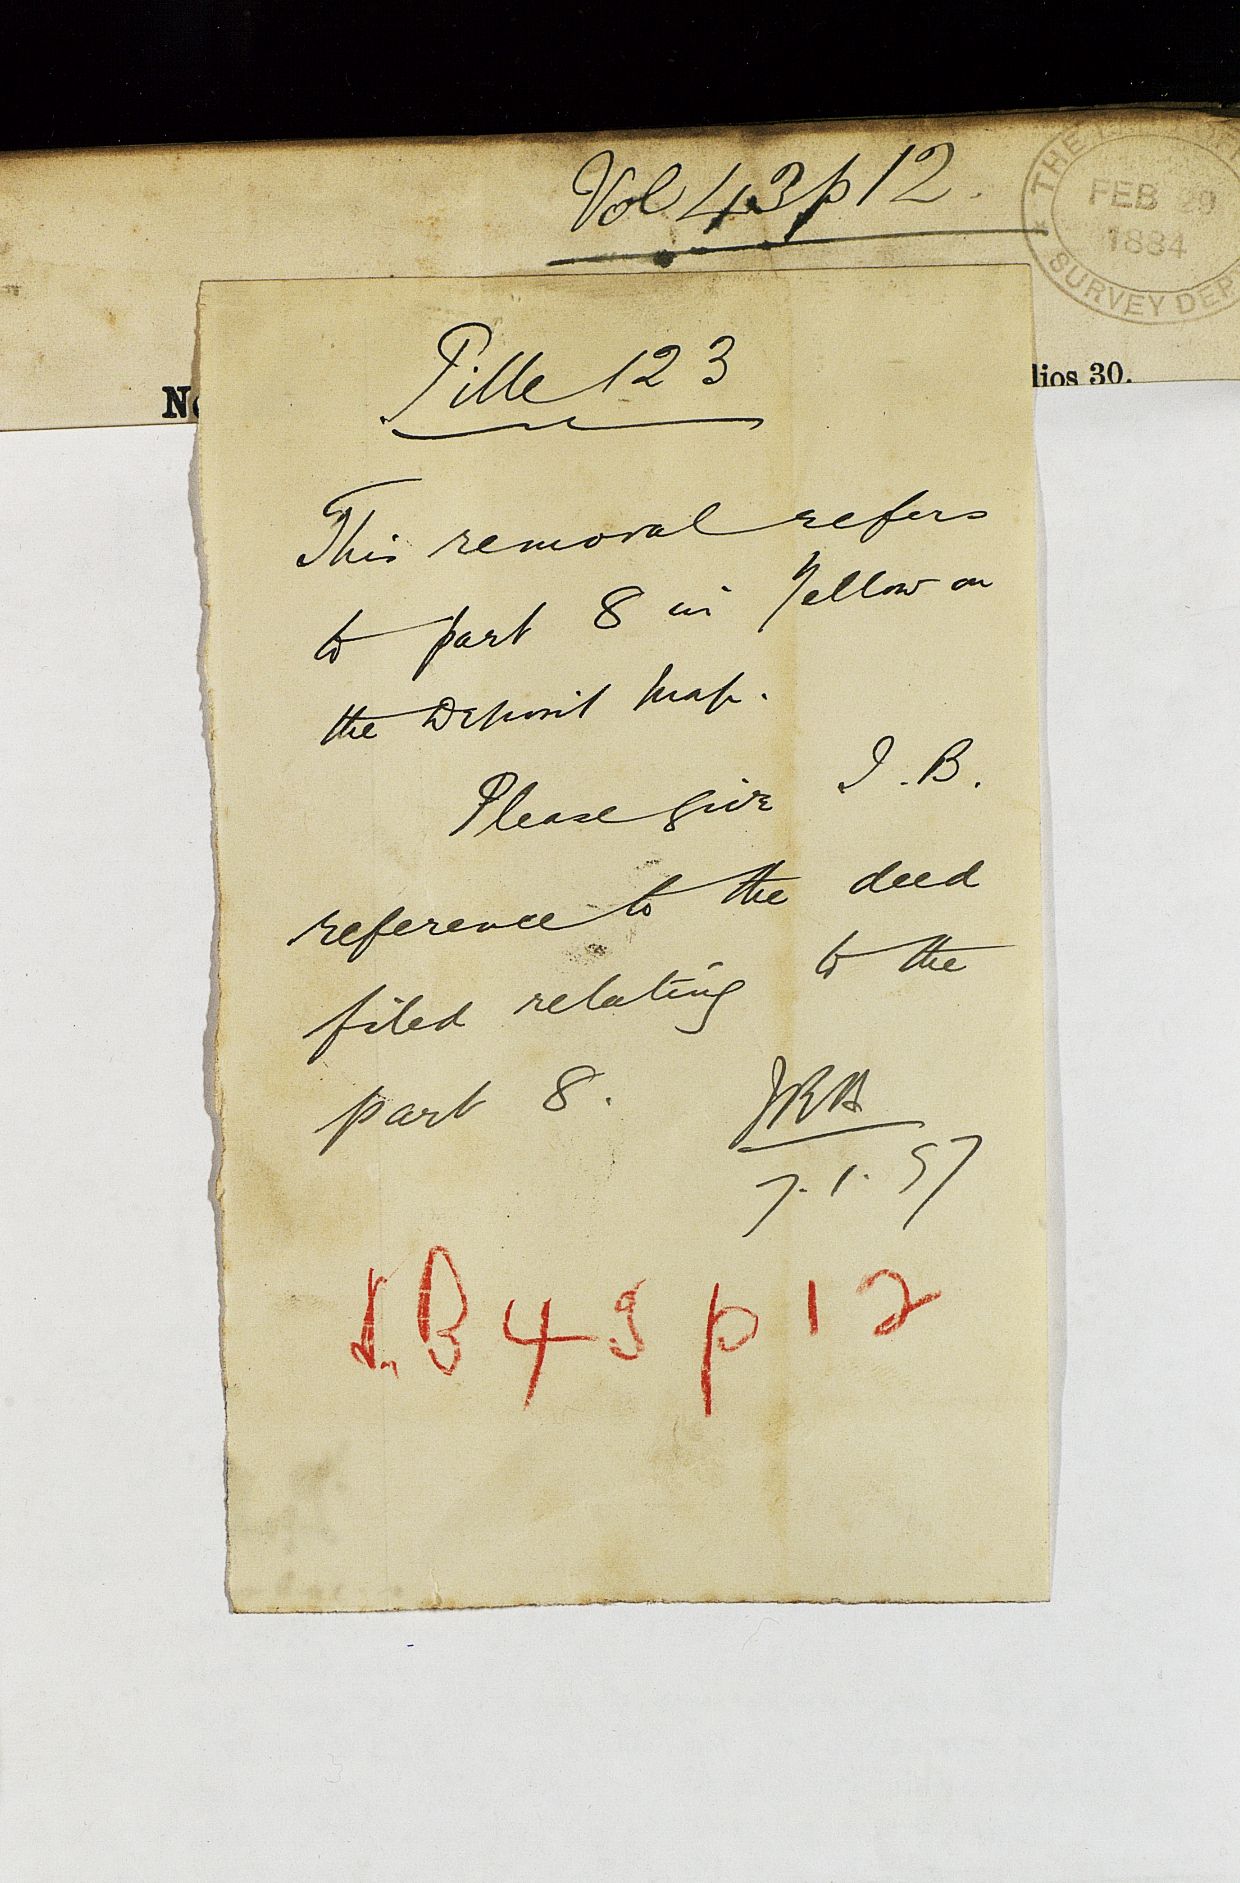 Vol 43 p 12.
FEB 29
1884
SURVEY DEP
lios 30.
Title 123
This removal refers
to part 8 in Yellow on
the Deposit Map.
Please give I.B.
reference to the deed
filed relating to the
part 8.
7.1.97
I.B 43 p 12